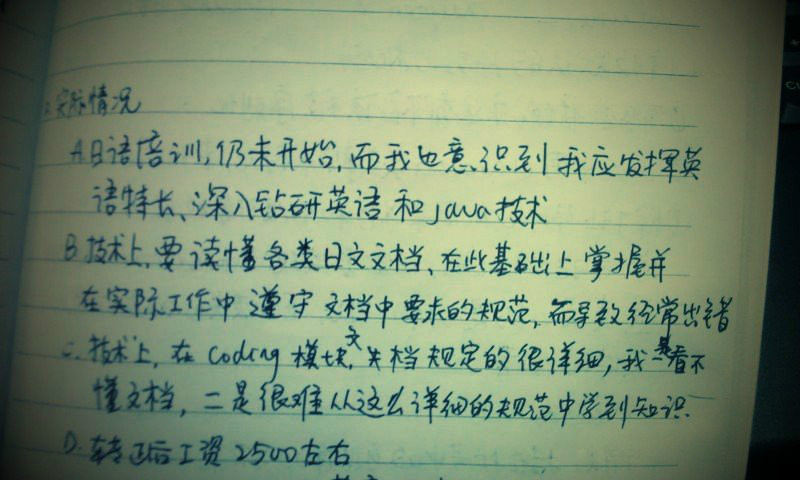 2.实际情况
A.日语培训,仍未开始,而我也意识到我应发挥英
语特长、深入钻研英语和java技术
B.技术上,要读懂各类日文文档、在此基础上掌握并
在实际工作中遵守文档中要求的规范,而导致经常出错
C.技术上,在coding模块,文档规定的很详细,我一是看不
懂文档,二是很难从这么详细的规范中学到知识.
D.转正后工资2500左右